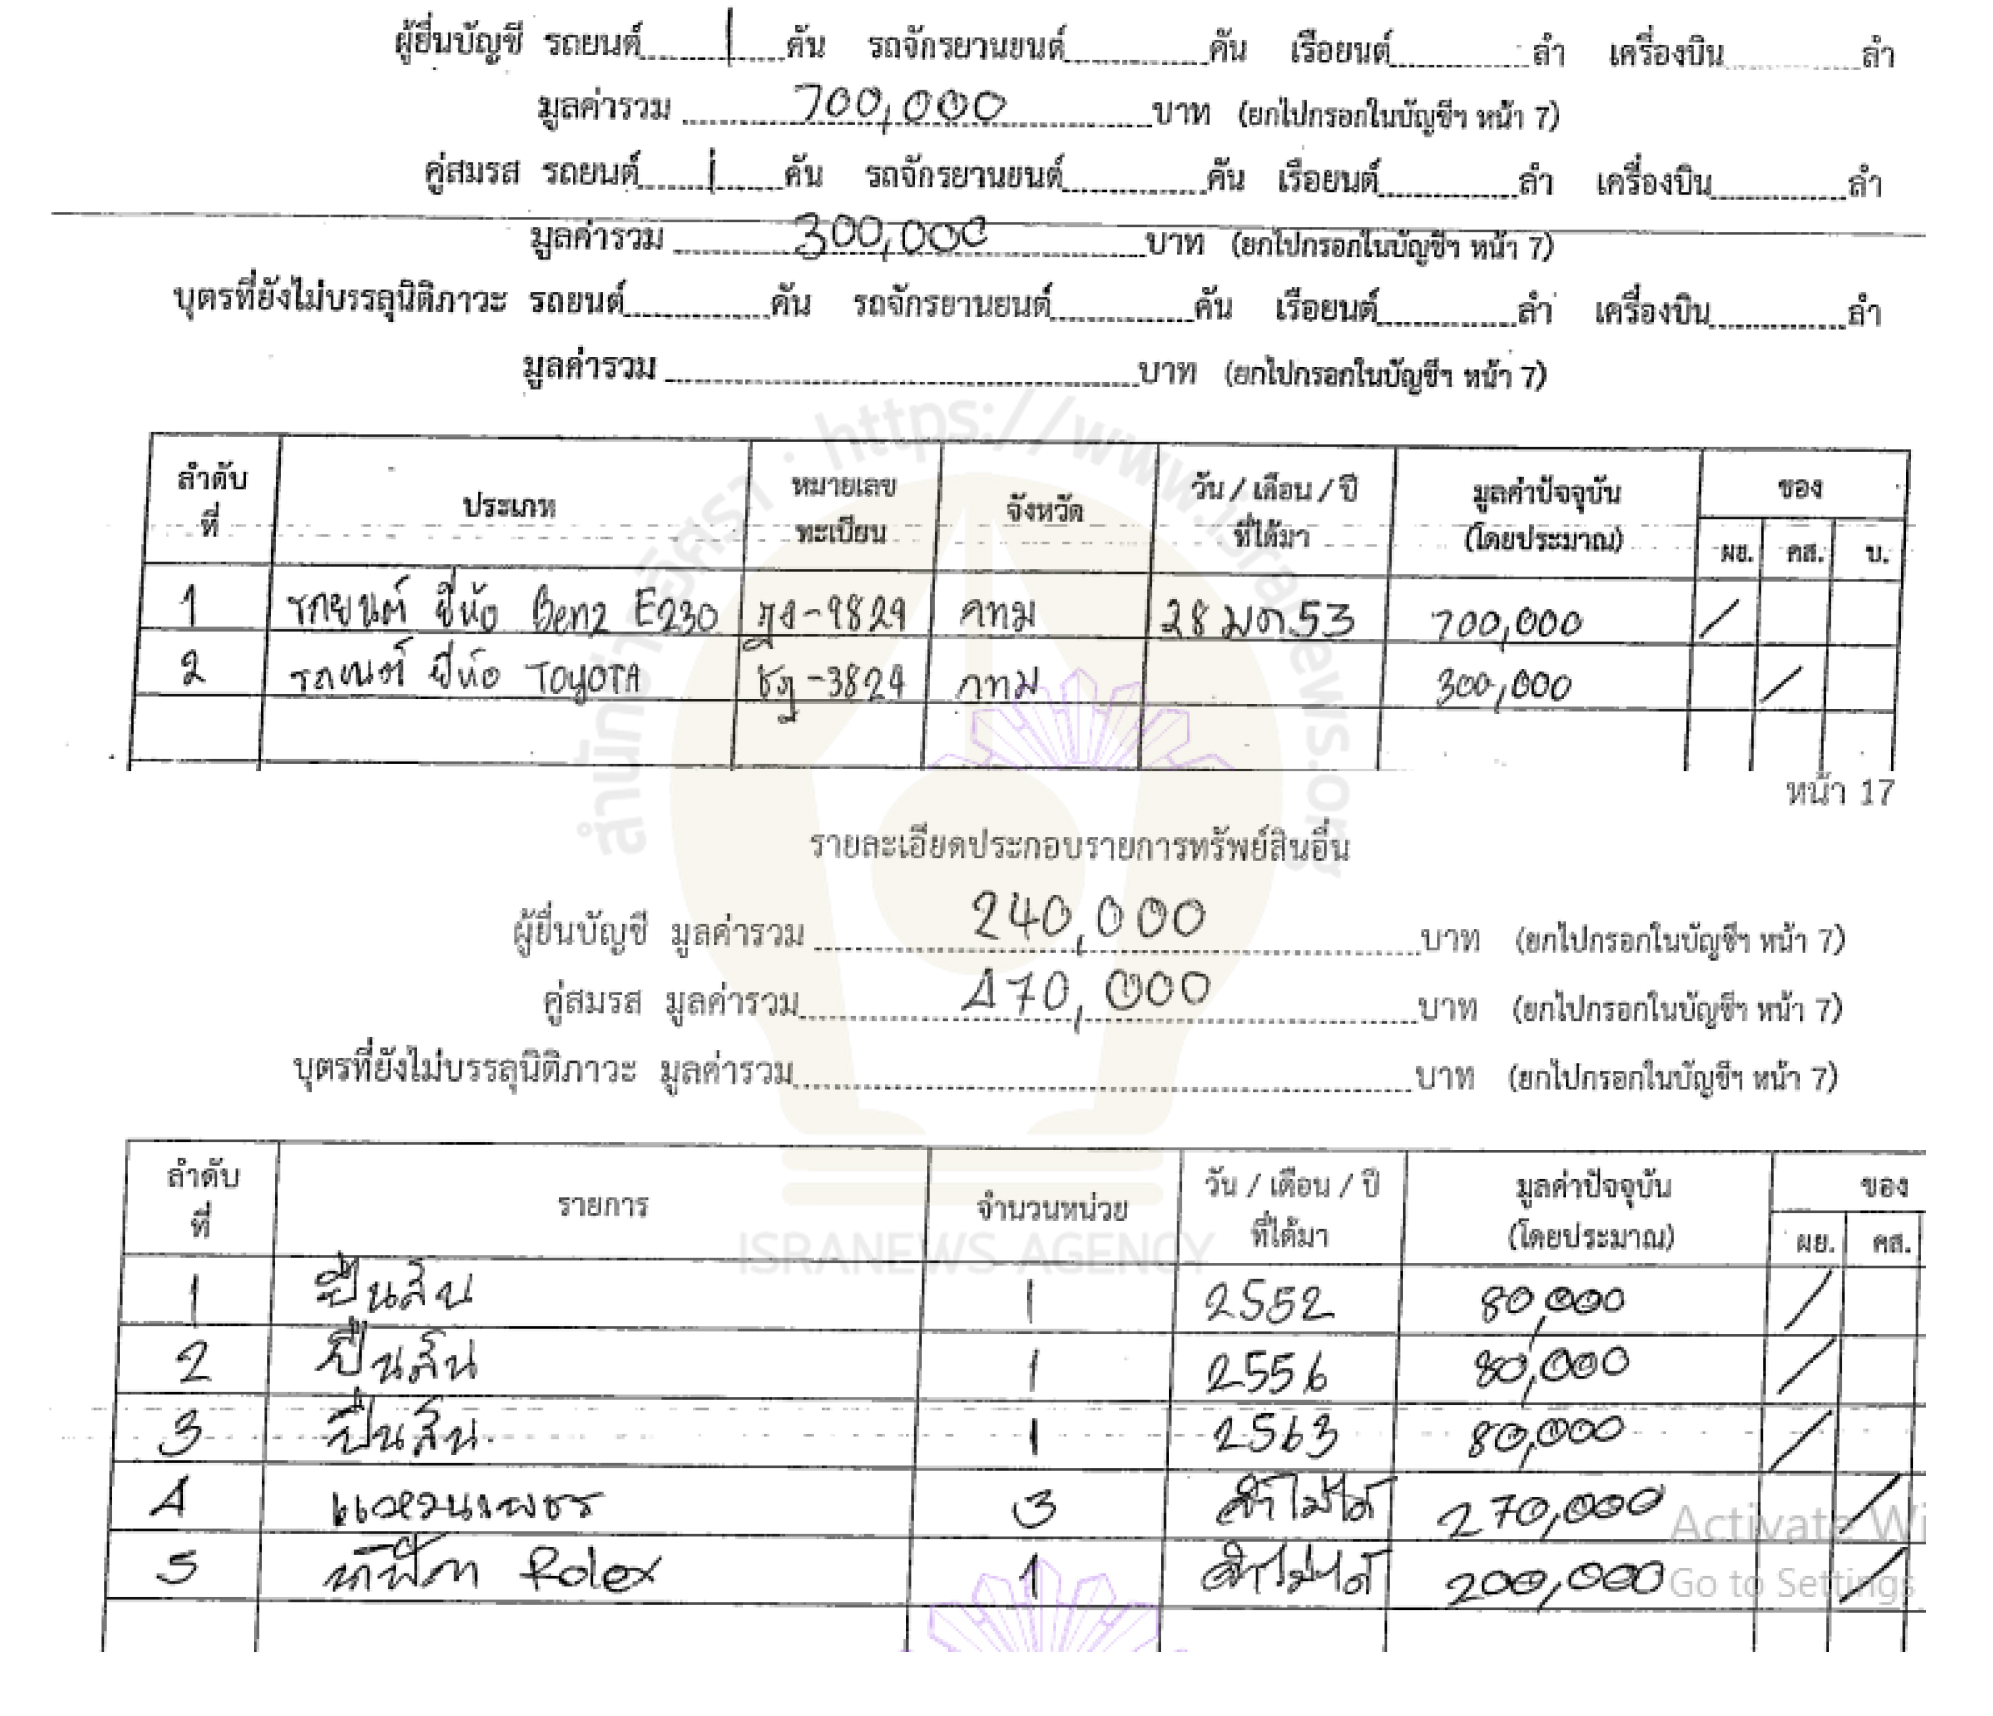 ผู้ยื่นบัญชี รถยนต์ 1 คัน รถจักรยานยนต์ คัน เรือยนต์ ลำ เครื่องบิน ลำ
มูลค่ารวม 700,000 บาท (ยกไปกรอกในบัญชีฯ หน้า 7)
คู่สมรส รถยนต์ 1 คัน รถจักรยานยนต์ คัน เรือยนต์ ลำ เครื่องบิน ลำ
มูลค่ารวม 300,000 บาท (ยกไปกรอกในบัญชีฯ หน้า 7)
บุตรที่ยังไม่บรรลุนิติภาวะ รถยนต์ คัน รถจักรยานยนต์ คัน เรือยนต์ ลำ เครื่องบิน ลำ
มูลค่ารวม บาท (ยกไปกรอกในบัญชีฯ หน้า 7)
ลำดับที่ ประเภท หมายเลขทะเบียน จังหวัด วัน / เดือน / ปี ที่ได้มา มูลค่าปัจจุบัน (โดยประมาณ) ของ ผย. คส. บ.
1 รถยนต์ ยี่ห้อ Benz E230 -9829 กทม 28 มค 53 700,000 /
2 รถยนต์ ยี่ห้อ TOYOTA -3829 กทม 300,000 /
หน้า 17
รายละเอียดประกอบรายการทรัพย์สินอื่น
ผู้ยื่นบัญชี มูลค่ารวม 240,000 บาท (ยกไปกรอกในบัญชีฯ หน้า 7)
คู่สมรส มูลค่ารวม 470,000 บาท (ยกไปกรอกในบัญชีฯ หน้า 7)
บุตรที่ยังไม่บรรลุนิติภาวะ มูลค่ารวม บาท (ยกไปกรอกในบัญชีฯ หน้า 7)
ลำดับที่ รายการ จำนวนหน่วย วัน / เดือน / ปี ที่ได้มา มูลค่าปัจจุบัน (โดยประมาณ) ของ ผย. คส.
1 ปืนสั้น 1 2552 80,000 /
2 ปืนสั้น 1 2556 80,000 /
3 ปืนสั้น 1 2563 80,000 /
4 แหวนเพชร 3 จำไม่ได้ 270,000 /
5 นาฬิกา Rolex 1 จำไม่ได้ 200,000 /
สำนักข่าวอิศรา : https://www.isranews.org
ISRANEWS AGENCY
Activate Wi
Go to Settings